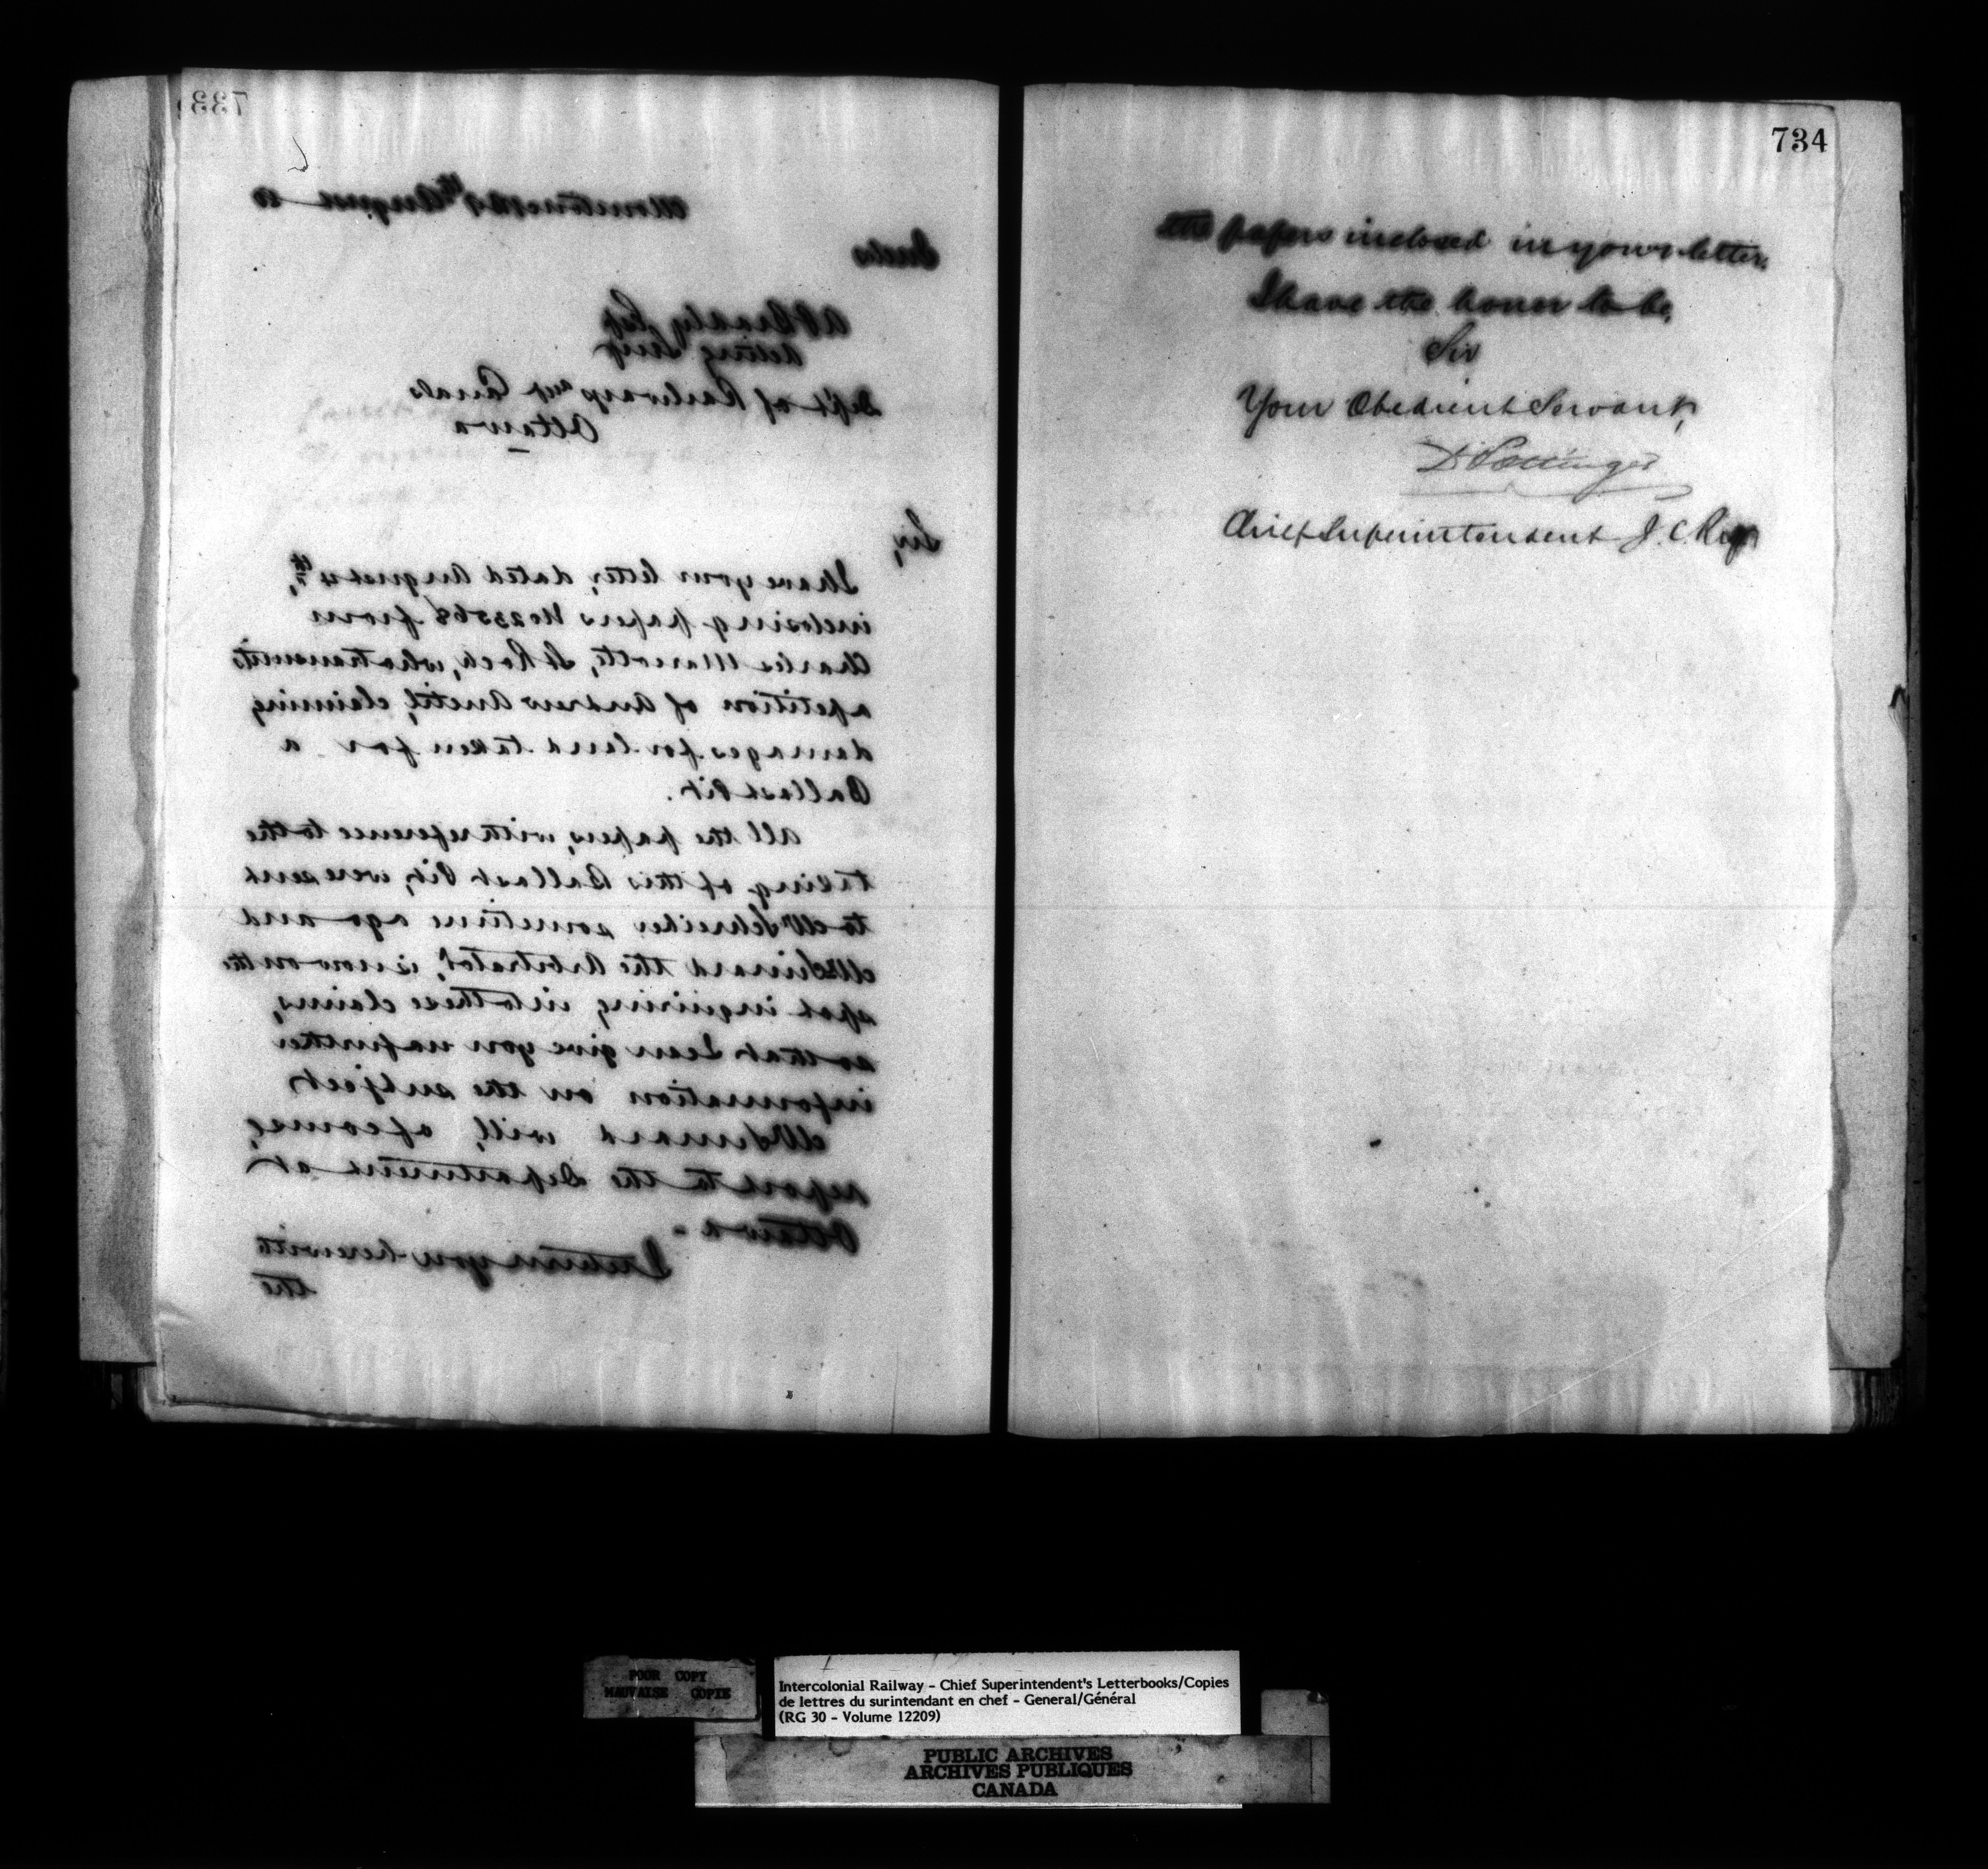 733
Moncton N.B. 9th August 80
A P Bradley Esq
Acting Secy
Dept of Railways and Canals
Ottawa
Sir,
I have your letter, dated August 4th,
inclosing papers No 23568 from
Charles Marcotte, St Roch, who transmits
a petition of Andrew Anctil, claiming
damages for land taken for a
Ballast Pit.
All the papers, with reference to the
taking of this Ballast Pit, were sent
to Mr Schreiber sometime ago and
Mr Simard the Arbitrator, is now on the
spot inquiring into these claims,
so that I can give you no further
information on the subject
Mr Simard will, of course,
report to the Department at
Ottawa -
I return you herewith
the
734
the papers inclosed in your letter.
I have the honor to be,
Sir
Your Obedient Servant,
D Pottinger
Chief Superintendent I.C.Ry
POOR COPY
MAUVAISE COPIE
Intercolonial Railway - Chief Superintendent's Letterbooks/Copies
de lettres du surintendant en chef - General/Général
(RG 30 - Volume 12209)
PUBLIC ARCHIVES
ARCHIVES PUBLIQUES
CANADA